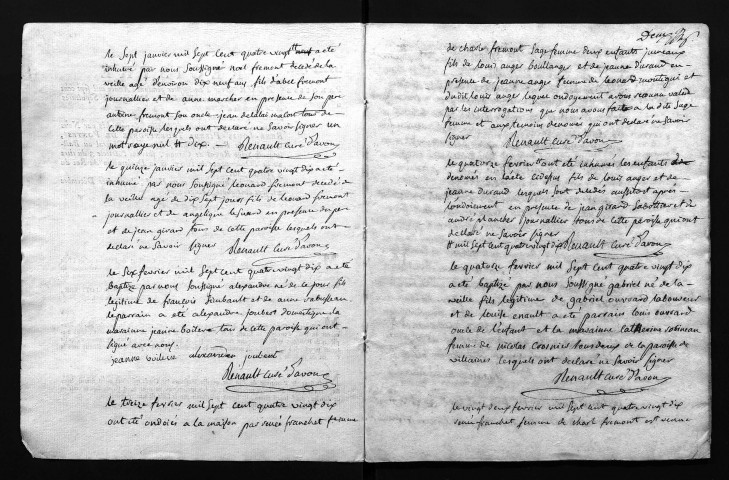 le Sept janvier mil Sept Cent quatre vingt a eté
inhumé par nous Soussigné noel fremont decedé de la
veille agé d'environ dix neuf ans fils d'abel fremont
journallier et de anne marcher en presence de Son pere
antoine fremont Son oncle jean delalai macon tous de
cette paroisse lesquels ont declaré ne Savoir Signer un
mot rayé nul # dix
Renault Curé d'avon
le quinze janvier mil Sept cent quatre vingt dix a eté
inhumé par nous Soussigné leonard fremont decedé de
la veille agé de dix Sept jours fils de leonard fremont
journallier et de angelique en presence du pere
et de jean girard tous de cette paroisse lesquels ont
declaré ne Savoir Signer
Renault Curé d'avon
le Six fevrier mil Sept cent quatre vingt dix a eté
baptizé par nous Soussigné alexandre né de ce jour fils
legitime de francois et de anne
le parrain a eté alexandre joubert domestique la
maraine jeanne boileve tous de cette paroisse qui ont
Signé avec nous
jeanne boileve alexandre joubert
Renault Curé d'avon
le treize fevrier mil Sept cent quatre vingt dix
ont été ondoiés a la maison par renée franchet femme
Deux
de charle fremont Sage femme deux enfants jumeaux
fils de louis anger boullanger et de jeanne durand en
presence de jeanne anger femme de leonard montigni et
dudit louis anger lequel ondoyement avons reconnu valide
par les interrogations que nous avons faites a la dite Sage
femme et aux temoins denomés qui ont declaré ne Savoir
Signer
Renault Curé d'avon
le quatorze fevrier # ont eté inhumés les enfants
denomés en lacte cidessus fils de louis anger et de
jeanne durand lesquels Sont decedés aussitost apres
londoiement en presence de jean girard Sabottier et de
andré plancher journallier tous de cette paroisse qui ont
declaré ne Savoir Signer
# mil Sept cent quatre vingt dix Renault Curé d'avon
le quatorze fevrier mil Sept cent quatre vingt dix
a eté baptizé par nous Soussigné gabriel né de la
veille fils legitime de gabriel ouvrard laboureur
et de louise enault a eté parrain louis ouvrard
oncle de l'enfant et la maraine Catherine
femme de nicolas Crosnier tous deux de la paroisse de
villaines lesquels ont declaré ne Savoir Signer
Renault Curé d'avon
le vingt deux fevrier mil Sept cent quatre vingt dix
renée franchet femme de charle fremont est venue